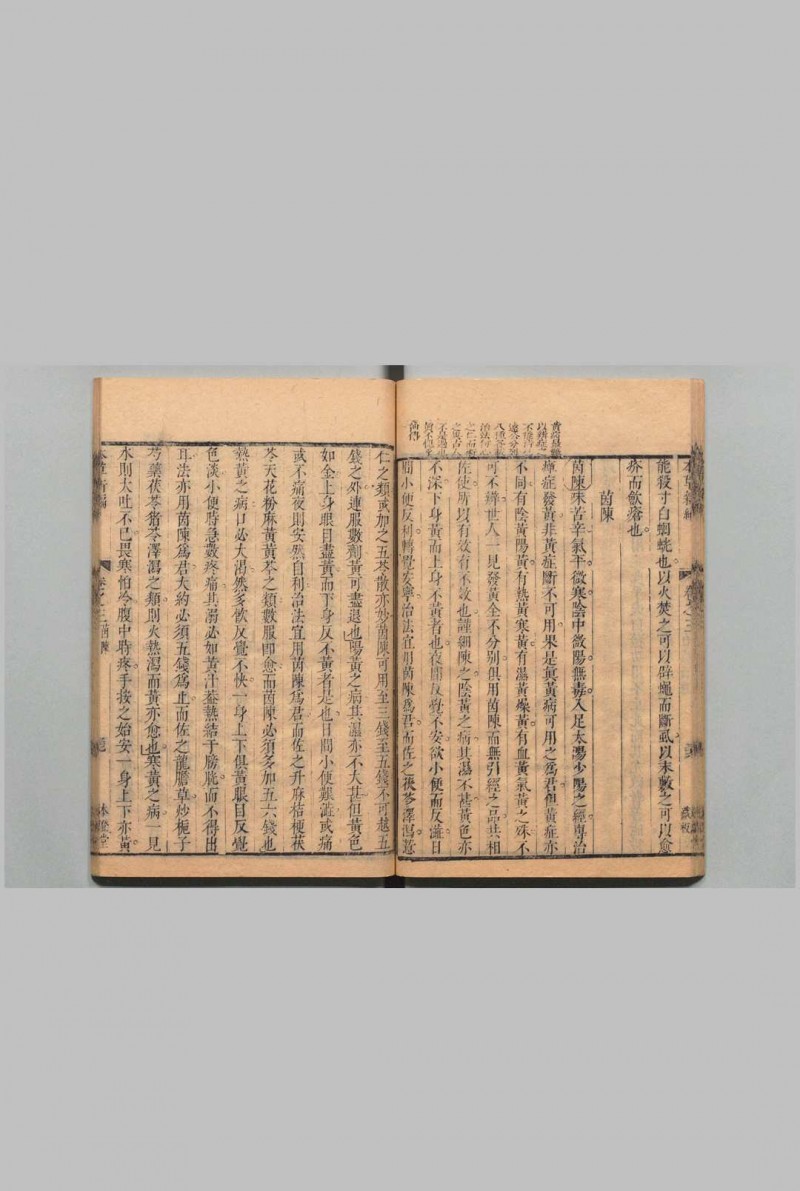 能殺寸白蜵蚘也以火焚之可以辟蠅而斷虱以末敷之可以愈
疥而歛瘡也
茵陳
茵陳味苦辛氣平微寒陰中微陽無毒入足太陽少陽之經專治
癉症發黃非黃症斷不可用果是眞黃病可用之爲君但黃症亦
不同有陰黃陽黃有熱黃寒黃有濕黃燥黃有血黃氣黃之殊不
可不辨世人一見發黃全不分別俱用茵陳而無引經之品共相
佐使所以有效有不效也謹細陳之陰黃之病其濕不甚黃色亦
不深下身黃而上身不黃者也夜間反覺不安欲小便而反澁日
間小便反利轉覺安寧治法宜用茵陳爲君而佐之茯苓澤瀉薏
仁之類或加之五苓散亦妙茵陳可用至三錢至五錢不可越五
錢之外連服數劑黃可盡退也陽黃之病其濕亦不大甚但黃色
如金上身眼目盡黃而下身反不黃者是也日間小便艱澁或痛
或不痛夜則安然自利治法宜用茵陳爲君而佐之升麻桔梗茯
苓天花粉麻黃黃芩之類數服即愈而茵陳必須多加五六錢也
熱黃之病口必大渴然多飲反覺不快一身上下俱黃眼目反覺
色淡小便時急數疼痛其溺必如黃汁葢熱結于膀胱而不得出
耳法亦用茵陳爲君大約必須五錢爲止而佐之龍膽草炒梔子
芍藥茯苓猪苓澤瀉之類則火熱瀉而黃亦愈也寒黃之病一見
水則大吐不已畏寒怕冷腹中時疼手按之始安一身上下亦黃
卷之三 茵陳
本澄堂